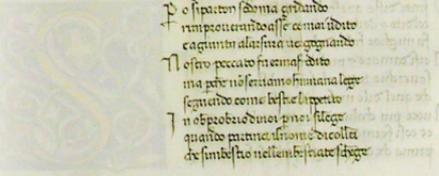 P o si parton sodoma gridando
rimproverando asse come ai udito
e agiuntin alarsura vergognando
N ostro peccato fu ermafrodito
ma pche nõ servamo humana lege
seguendo come bestie lapetito
I n obprobrio di noi p noi si lege
quando partinci il nome di collei
che simbestio nellembestiate schege